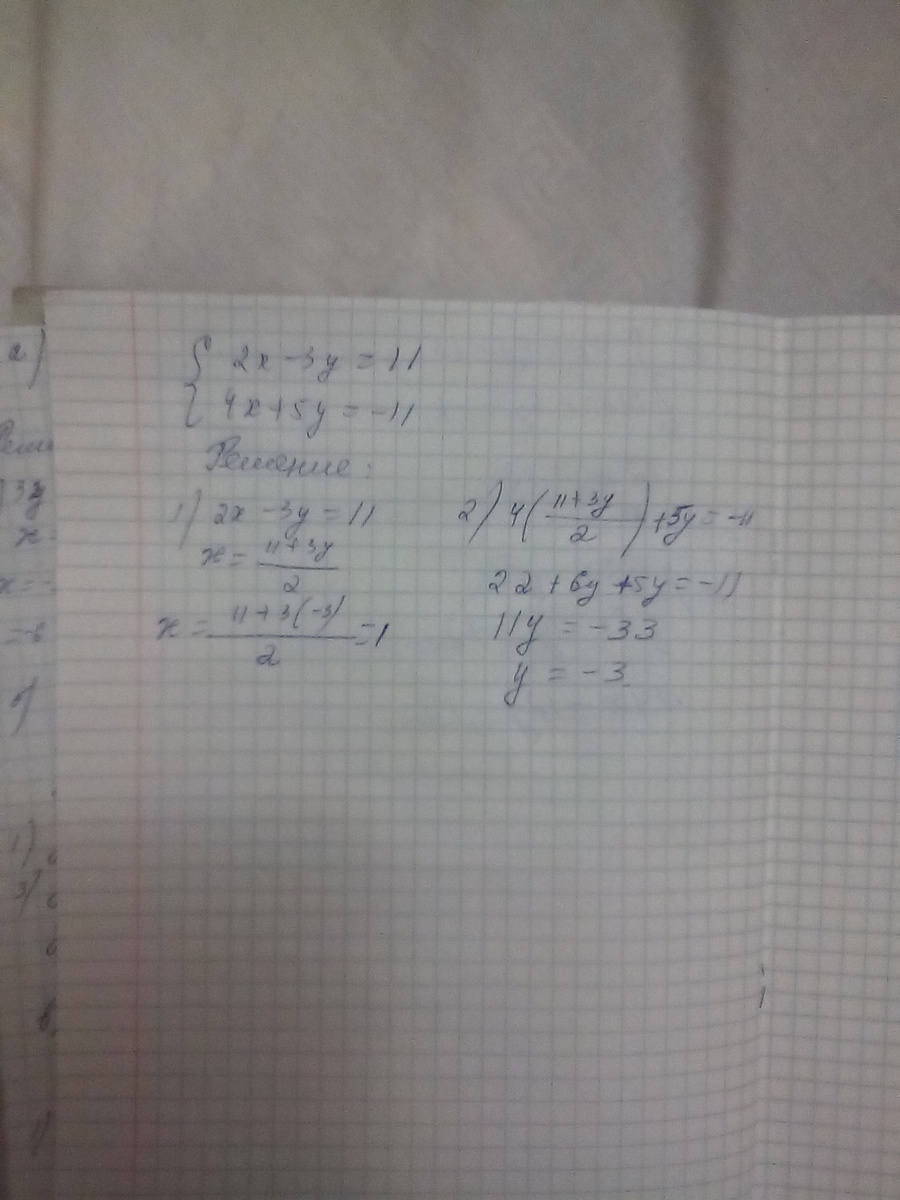 2x - 3y = 11
4x + 5y = -11
Решение:
1) 2x - 3y = 11
x = 11 + 3y / 2
x = 11 + 3(-3) / 2 = 1
2) 4(11 + 3y / 2) + 5y = -11
22 + 6y + 5y = -11
11y = -33
y = -3
а)
3y
x =
x = -
= -6
б)
1)
3)